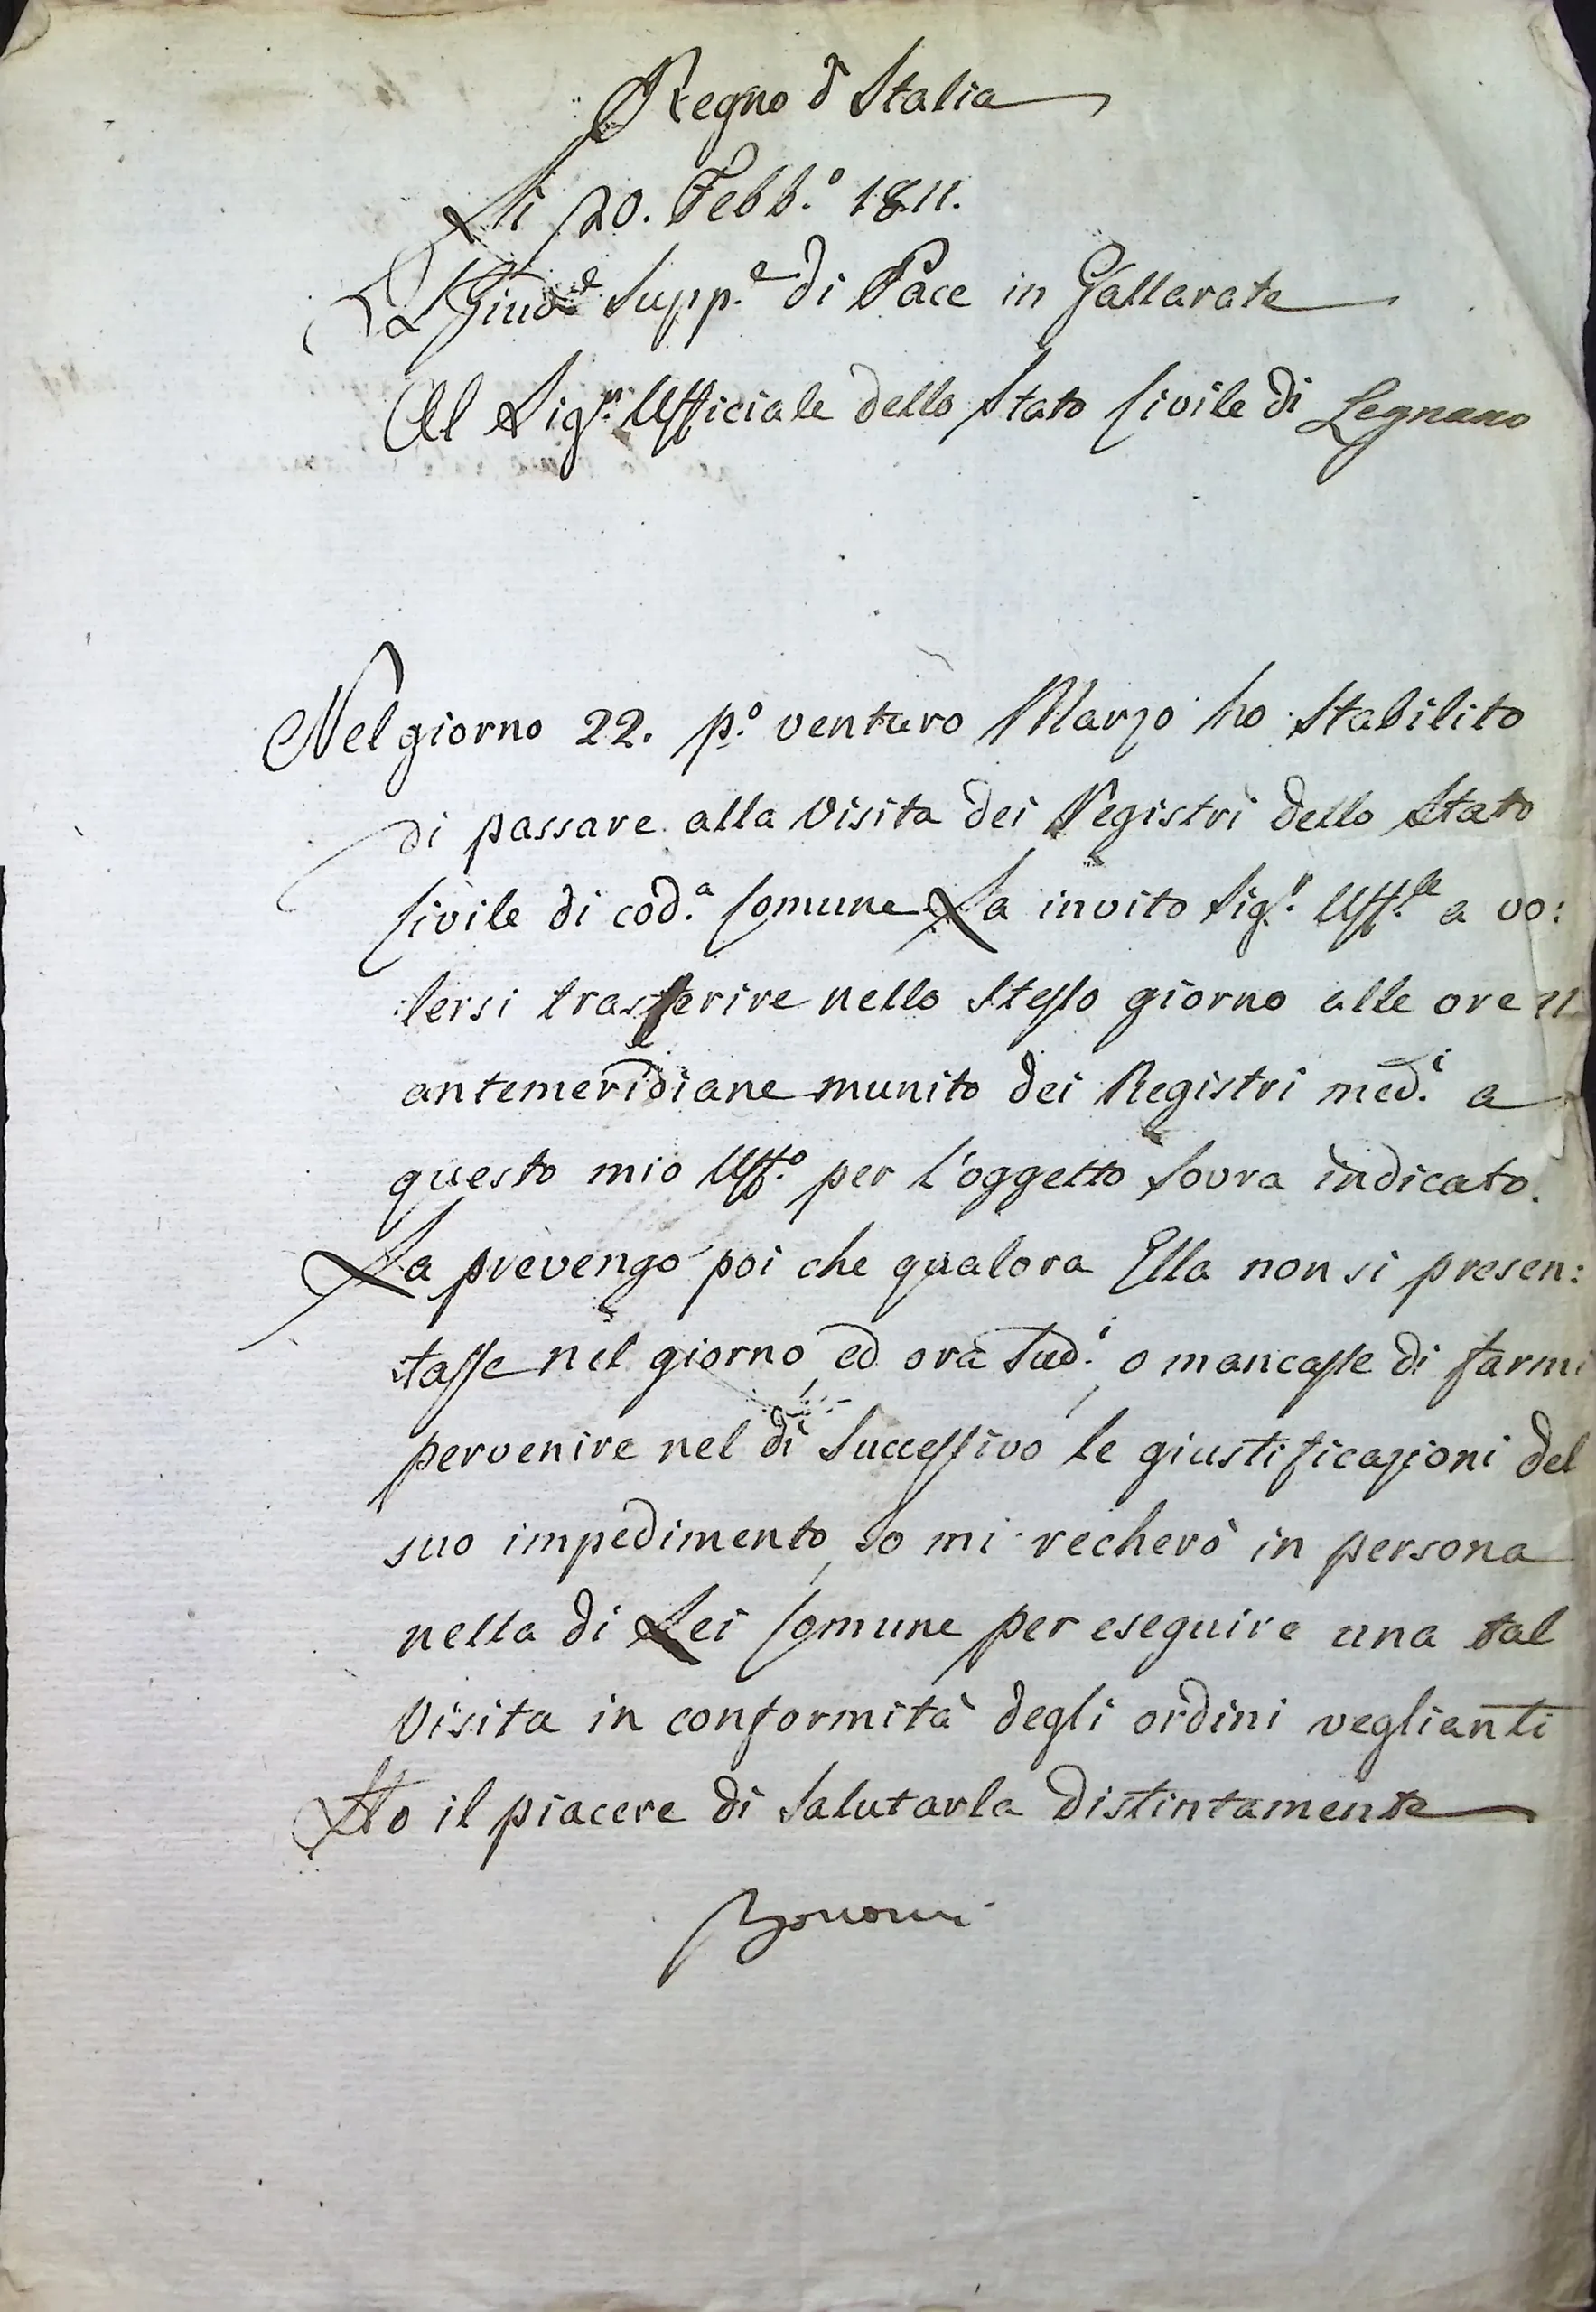 Regno d'Italia
Li 20. Febb.º 1811.
Il Giud.e Supp.e di Pace in Gallarate
Al Sig.r Ufficiale dello Stato Civile di Legnano
Nel giorno 22. p.º venturo Marzo ho stabilito
di passare alla Visita dei Registri dello Stato
Civile di cod.a Comune La invito Sig.r Uff.le a vo:
lersi trasferire nello stesso giorno alle ore 11
antemeridiane munito dei Registri med.i a
questo mio Uff.º per l'oggetto sovra indicato.
La prevengo poi che qualora Ella non si presen:
tasse nel giorno, ed ora sud.i, o mancasse di farmi
pervenire nel dì successivo le giustificazioni del
suo impedimento, Io mi recherò in persona
nella di Lei Comune per eseguire una tal
Visita in conformità degli ordini veglianti
Ho il piacere di salutarla distintamente
Bonomi